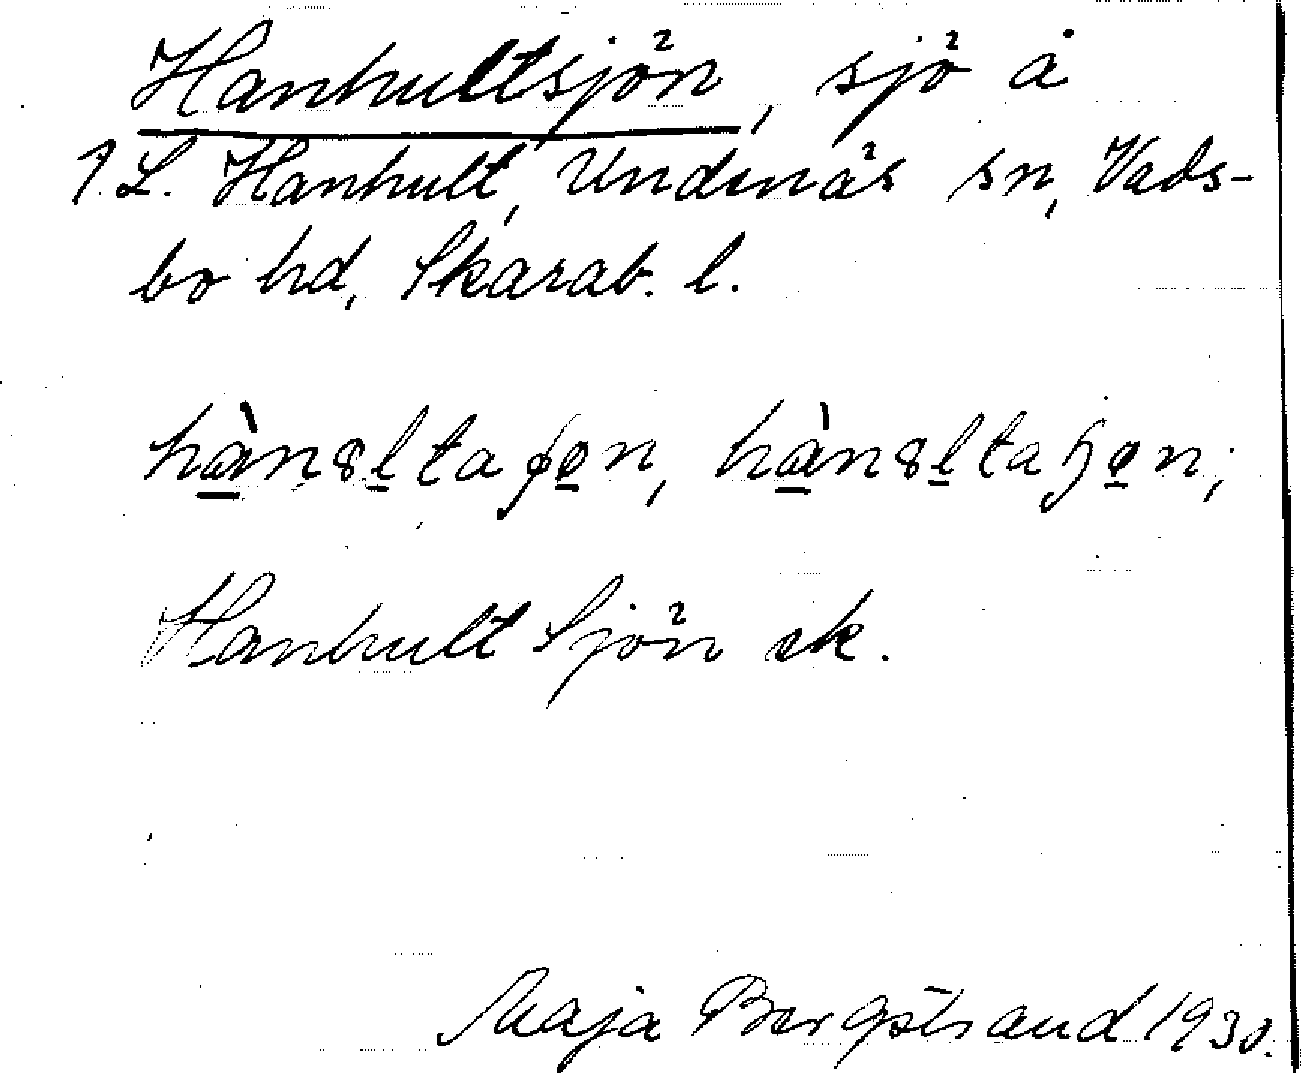 Hanhultsjön, sjö å
1. L. Hanhult, Undenäs sn, Vads-
bo hd, Skarab. l.
Hanhult Sjön ek.
Maja Bergstrand 1930.